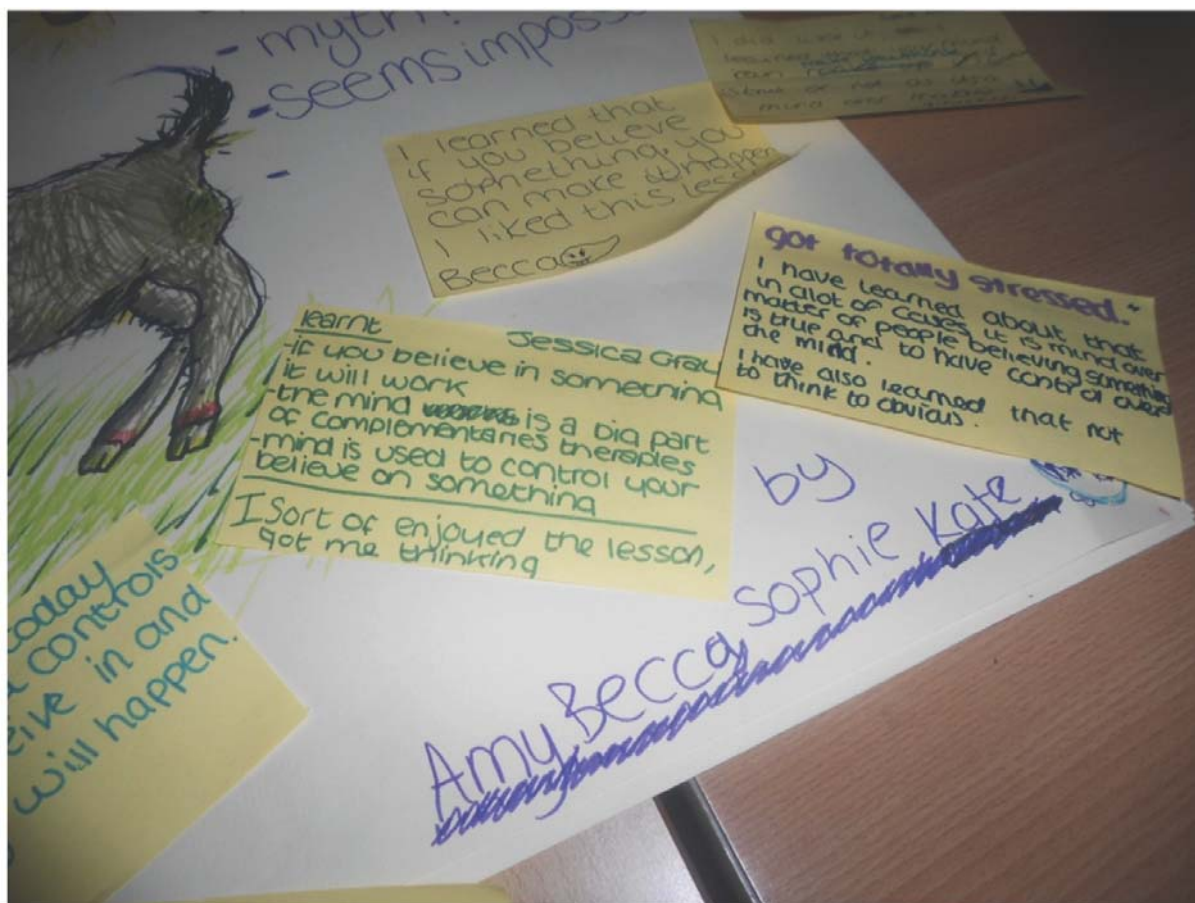 - myth?
- seems imposs
-
I learned that
if you believe
something, you
can make it happen
I liked this less
Becca
I did
learned that
run
mind over matter
got totally stressed.
I have learned about that
in alot of cases it is mind over
matter of people believing something
is true and to have control over
the mind.
I have also learned that not
to think to obvious.
learnt Jessica Gray
-if you believe in something
it will work
-the mind is a big part
of complementaries therapies
-mind is used to control your
believe on something
I sort of enjoyed the lesson,
got me thinking
today
controls
eive in and
will happen.
by
Amy, Becca, Sophie Kate